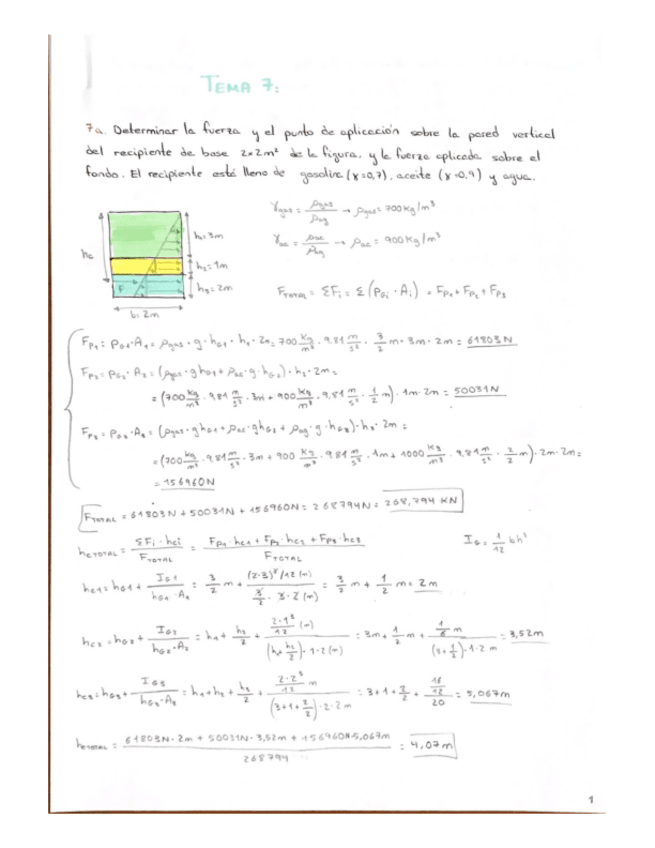 TEMA 7:
7a. Determinar la fuerza y el punto de aplicación sobre la pared vertical
del recipiente de base 2x2m² de la figura, y la fuerza aplicada sobre el
fondo. El recipiente está lleno de gasolina (γ=0,7), aceite (γ=0,9) y agua.
γgas = ρgas / ρag → ρgas = 700 Kg/m³
γac = ρac / ρag → ρac = 900 Kg/m³
hc
h₁=3m
h₂=1m
h₃=2m
F
b=2m
FTOTAL = ΣFi = Σ(PGi · Ai) = FP1 + FP2 + FP3
FP1 = PG1·A1 = ρgas · g · hG1 · h1 · 2m = 700 Kg/m³ · 9,81 m/s² · 3/2 m · 3m · 2m = 61803N
FP2 = PG2·A2 = (ρgas · g h1 + ρac · g · hG2) · h2 · 2m =
= (700 Kg/m³ · 9,81 m/s² · 3m + 900 Kg/m³ · 9,81 m/s² · 1/2 m) · 1m · 2m = 50031N
FP3 = PG3·A3 = (ρgas · g h1 + ρac · g h2 + ρag · g · hG3) · h3 · 2m =
= (700 Kg/m³ · 9,81 m/s² · 3m + 900 Kg/m³ · 9,81 m/s² · 1m + 1000 Kg/m³ · 9,81 m/s² · 2/2 m) · 2m · 2m =
= 156960N
FTOTAL = 61803N + 50031N + 156960N = 268794N = 268,794 KN
hcTOTAL = ΣFi · hci / FTOTAL = FP1 · hc1 + FP2 · hc2 + FP3 · hc3 / FTOTAL
IG = 1/12 bh³
hc1 = hG1 + IG1 / hG1 · A1 = 3/2 m + (2·3)³/12 (m) / 3/2 · 3·2 (m) = 3/2 m + 1/2 m = 2m
hc2 = hG2 + IG2 / hG2 · A2 = h1 + h2/2 + 2·1³/12 (m) / (h1 + h2/2) · 1·2 (m) = 3m + 1/2 m + 1/6 m / (3+1/2) · 1·2 m = 3,52m
hc3 = hG3 + IG3 / hG3 · A3 = h1 + h2 + h3/2 + 2·2³/12 m / (3+1+2/2) · 2·2 m = 3+1+2/2 + 16/12 / 20 = 5,067m
hcTOTAL = 61803N · 2m + 50031N · 3,52m + 156960N · 5,067m / 268794 = 4,07m
1